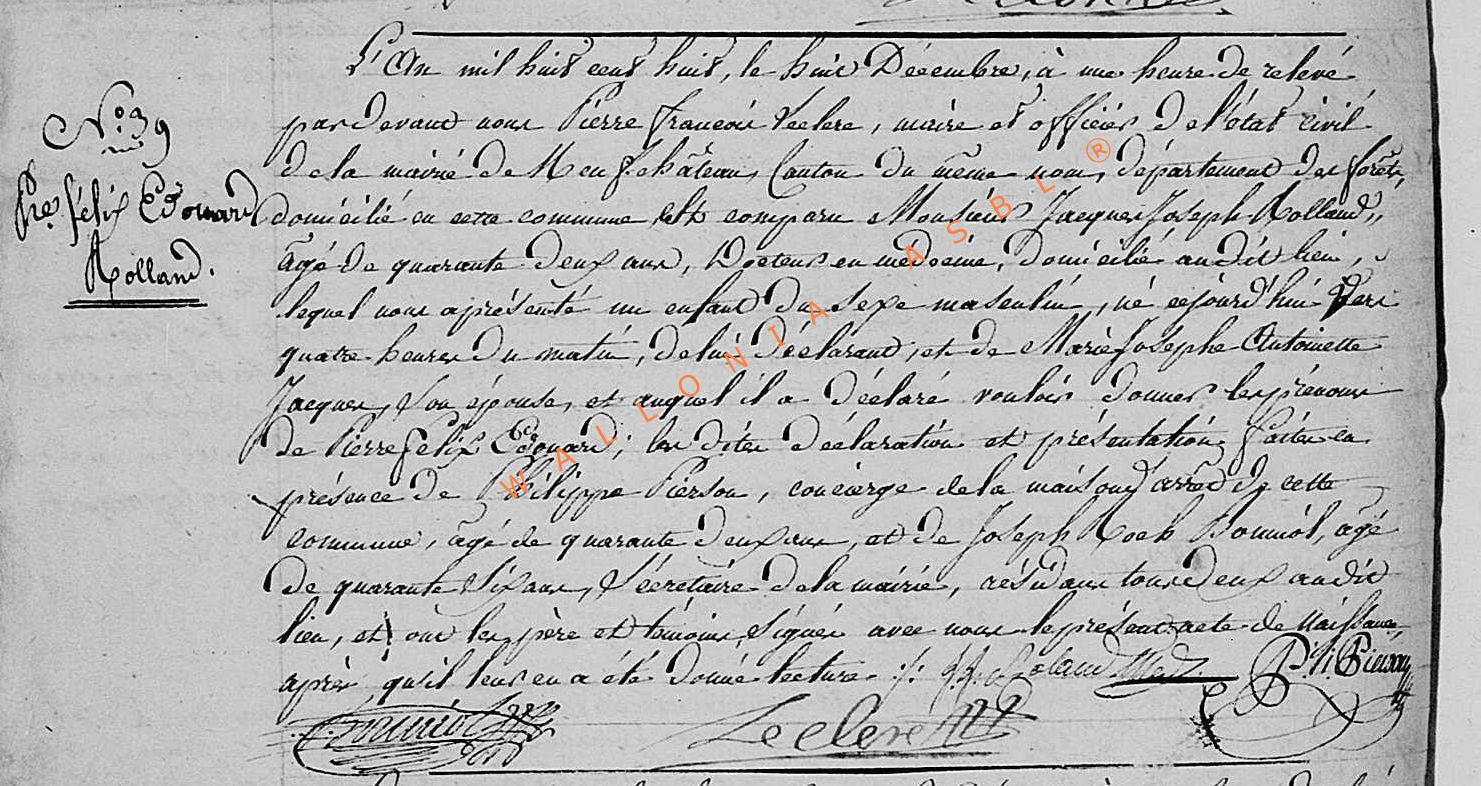 N.º 39
Pre. félix Edouard
Rolland.
L'An mil huit cent huit, le huit Décembre, à une heure de relevé
pardevant nous Pierre françois Leclerc, maire et officier de l'état civil
de la mairie de Neufchâteau, Canton du même nom, département des forêts,
domicilié en cette commune, est comparu Monsieur Jacques Joseph Rolland,
âgé de quarante deux ans, Docteur en médecine, domicilié audit lieu,
lequel nous a présenté un enfant du sexe masculin, né cejourd'hui vers
quatre heures du matin, de lui déclarant, et de Marie Josephe Antoinette
Jacques, son épouse, et auquel il a déclaré vouloir donner les prénoms
de Pierre felix Edouard; les dites déclaration et présentation faites en
présence de Philippe Pierson, concierge de la maison d'arrêt de cette
commune, âgé de quarante deux ans, et de Joseph Roch Bouniol, âgé
de quarante six ans, Sécrétaire de la mairie, résidans tous deux audit
lieu, et ont les père et témoins, signés avec nous le présent acte de Naissance,
après qu'il leur en a été donné lecture ./.
J. J. Roland Med.
Ph. Pierson
Bouniol
Leclerc
WALLONIA ASBL ®